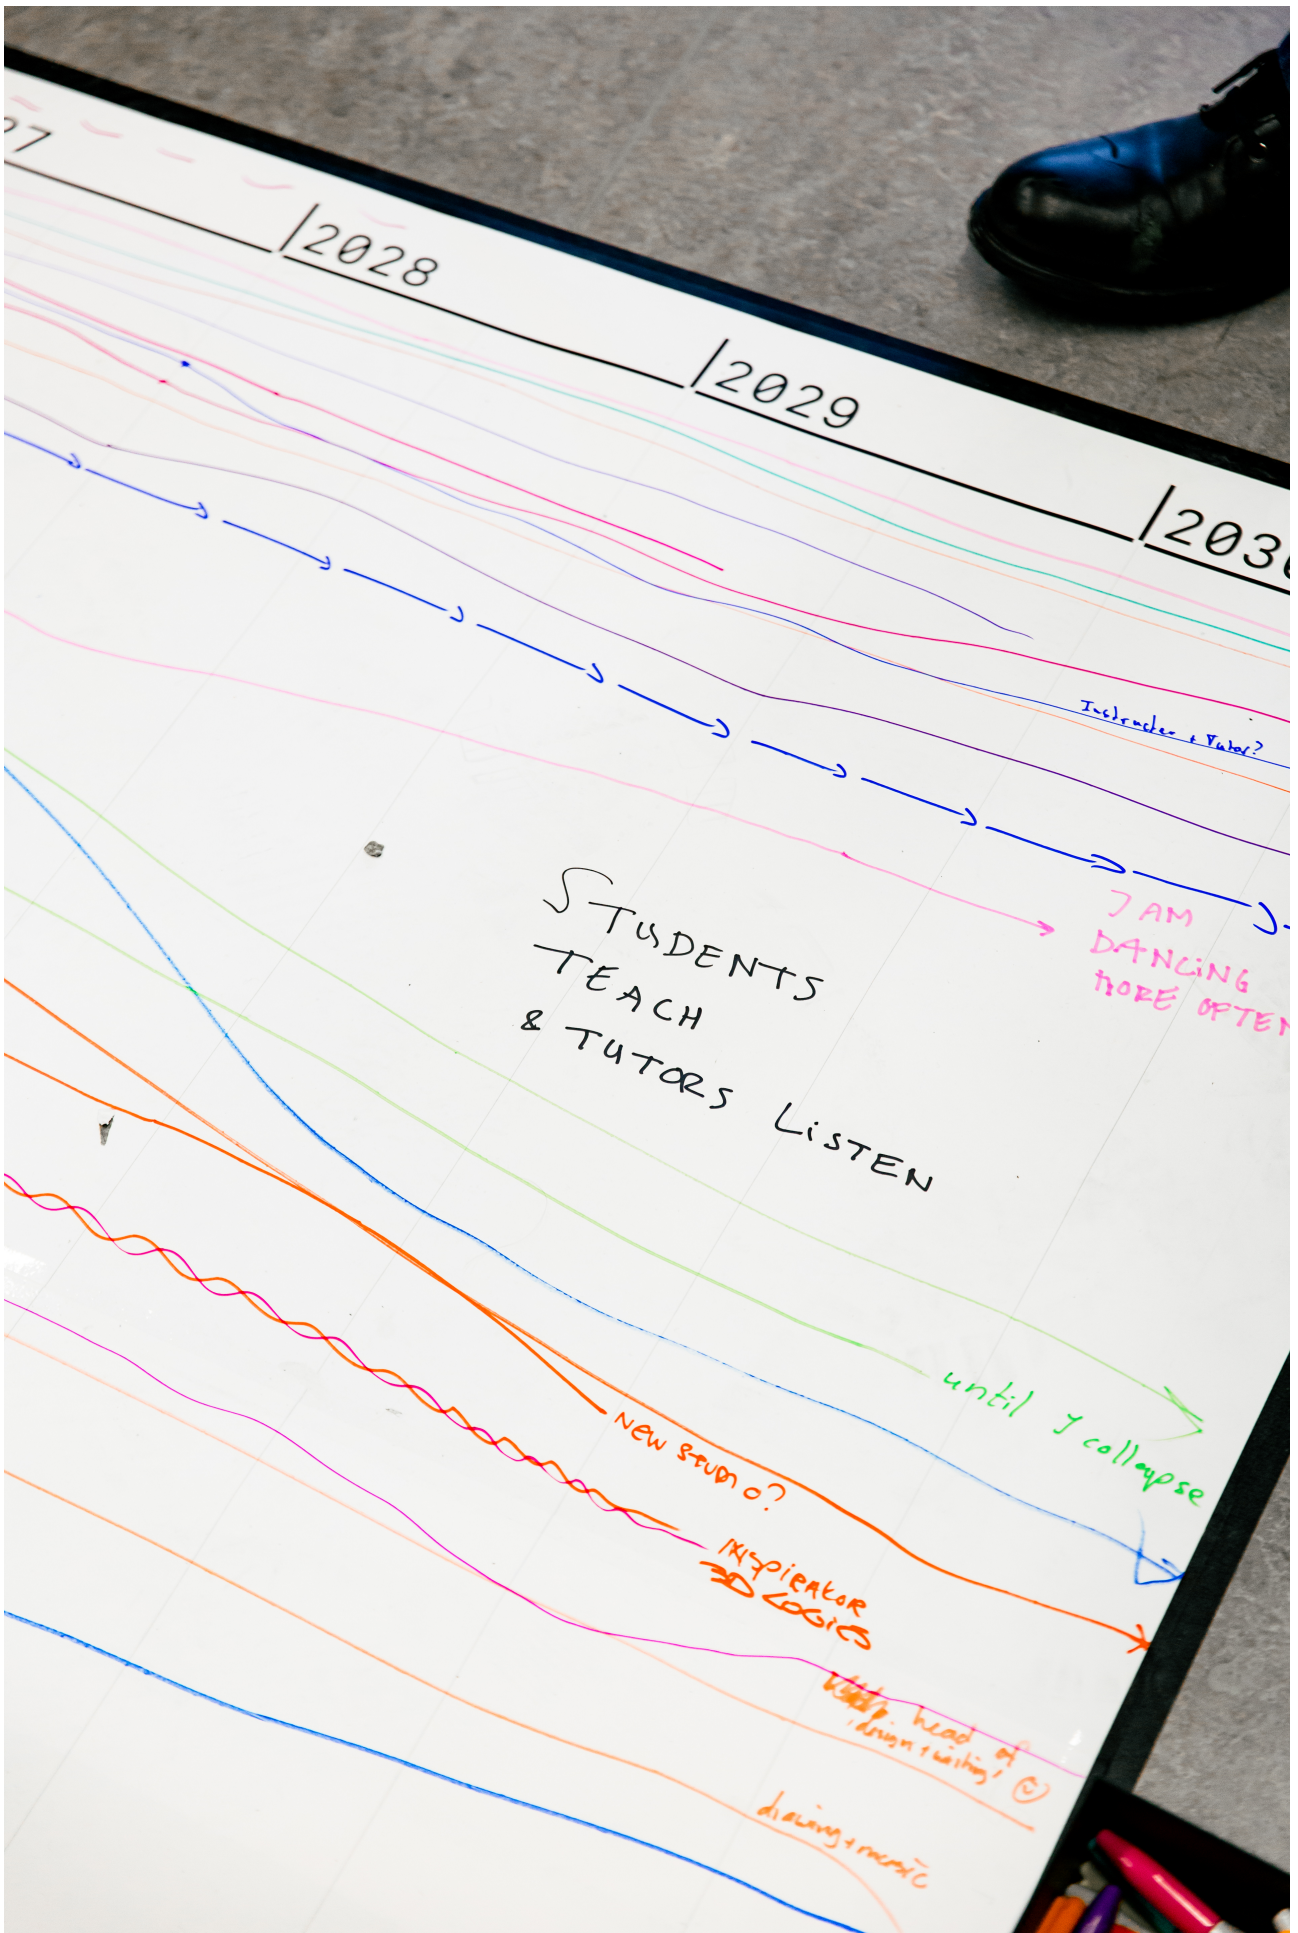 27
|2028
|2029
|2030
Instructer + Tutor?
I AM
DANCING
MORE OFTEN
STUDENTS
TEACH
& TUTORS LiSTEN
until y collapse
NEW STUDIO?
INSPIRATOR
3D LOGICS
head of
'design + writing'
drawing + music